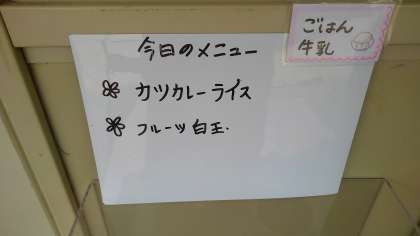 ごはん
牛乳
今日のメニュー
カツカレーライス
フルーツ白玉.